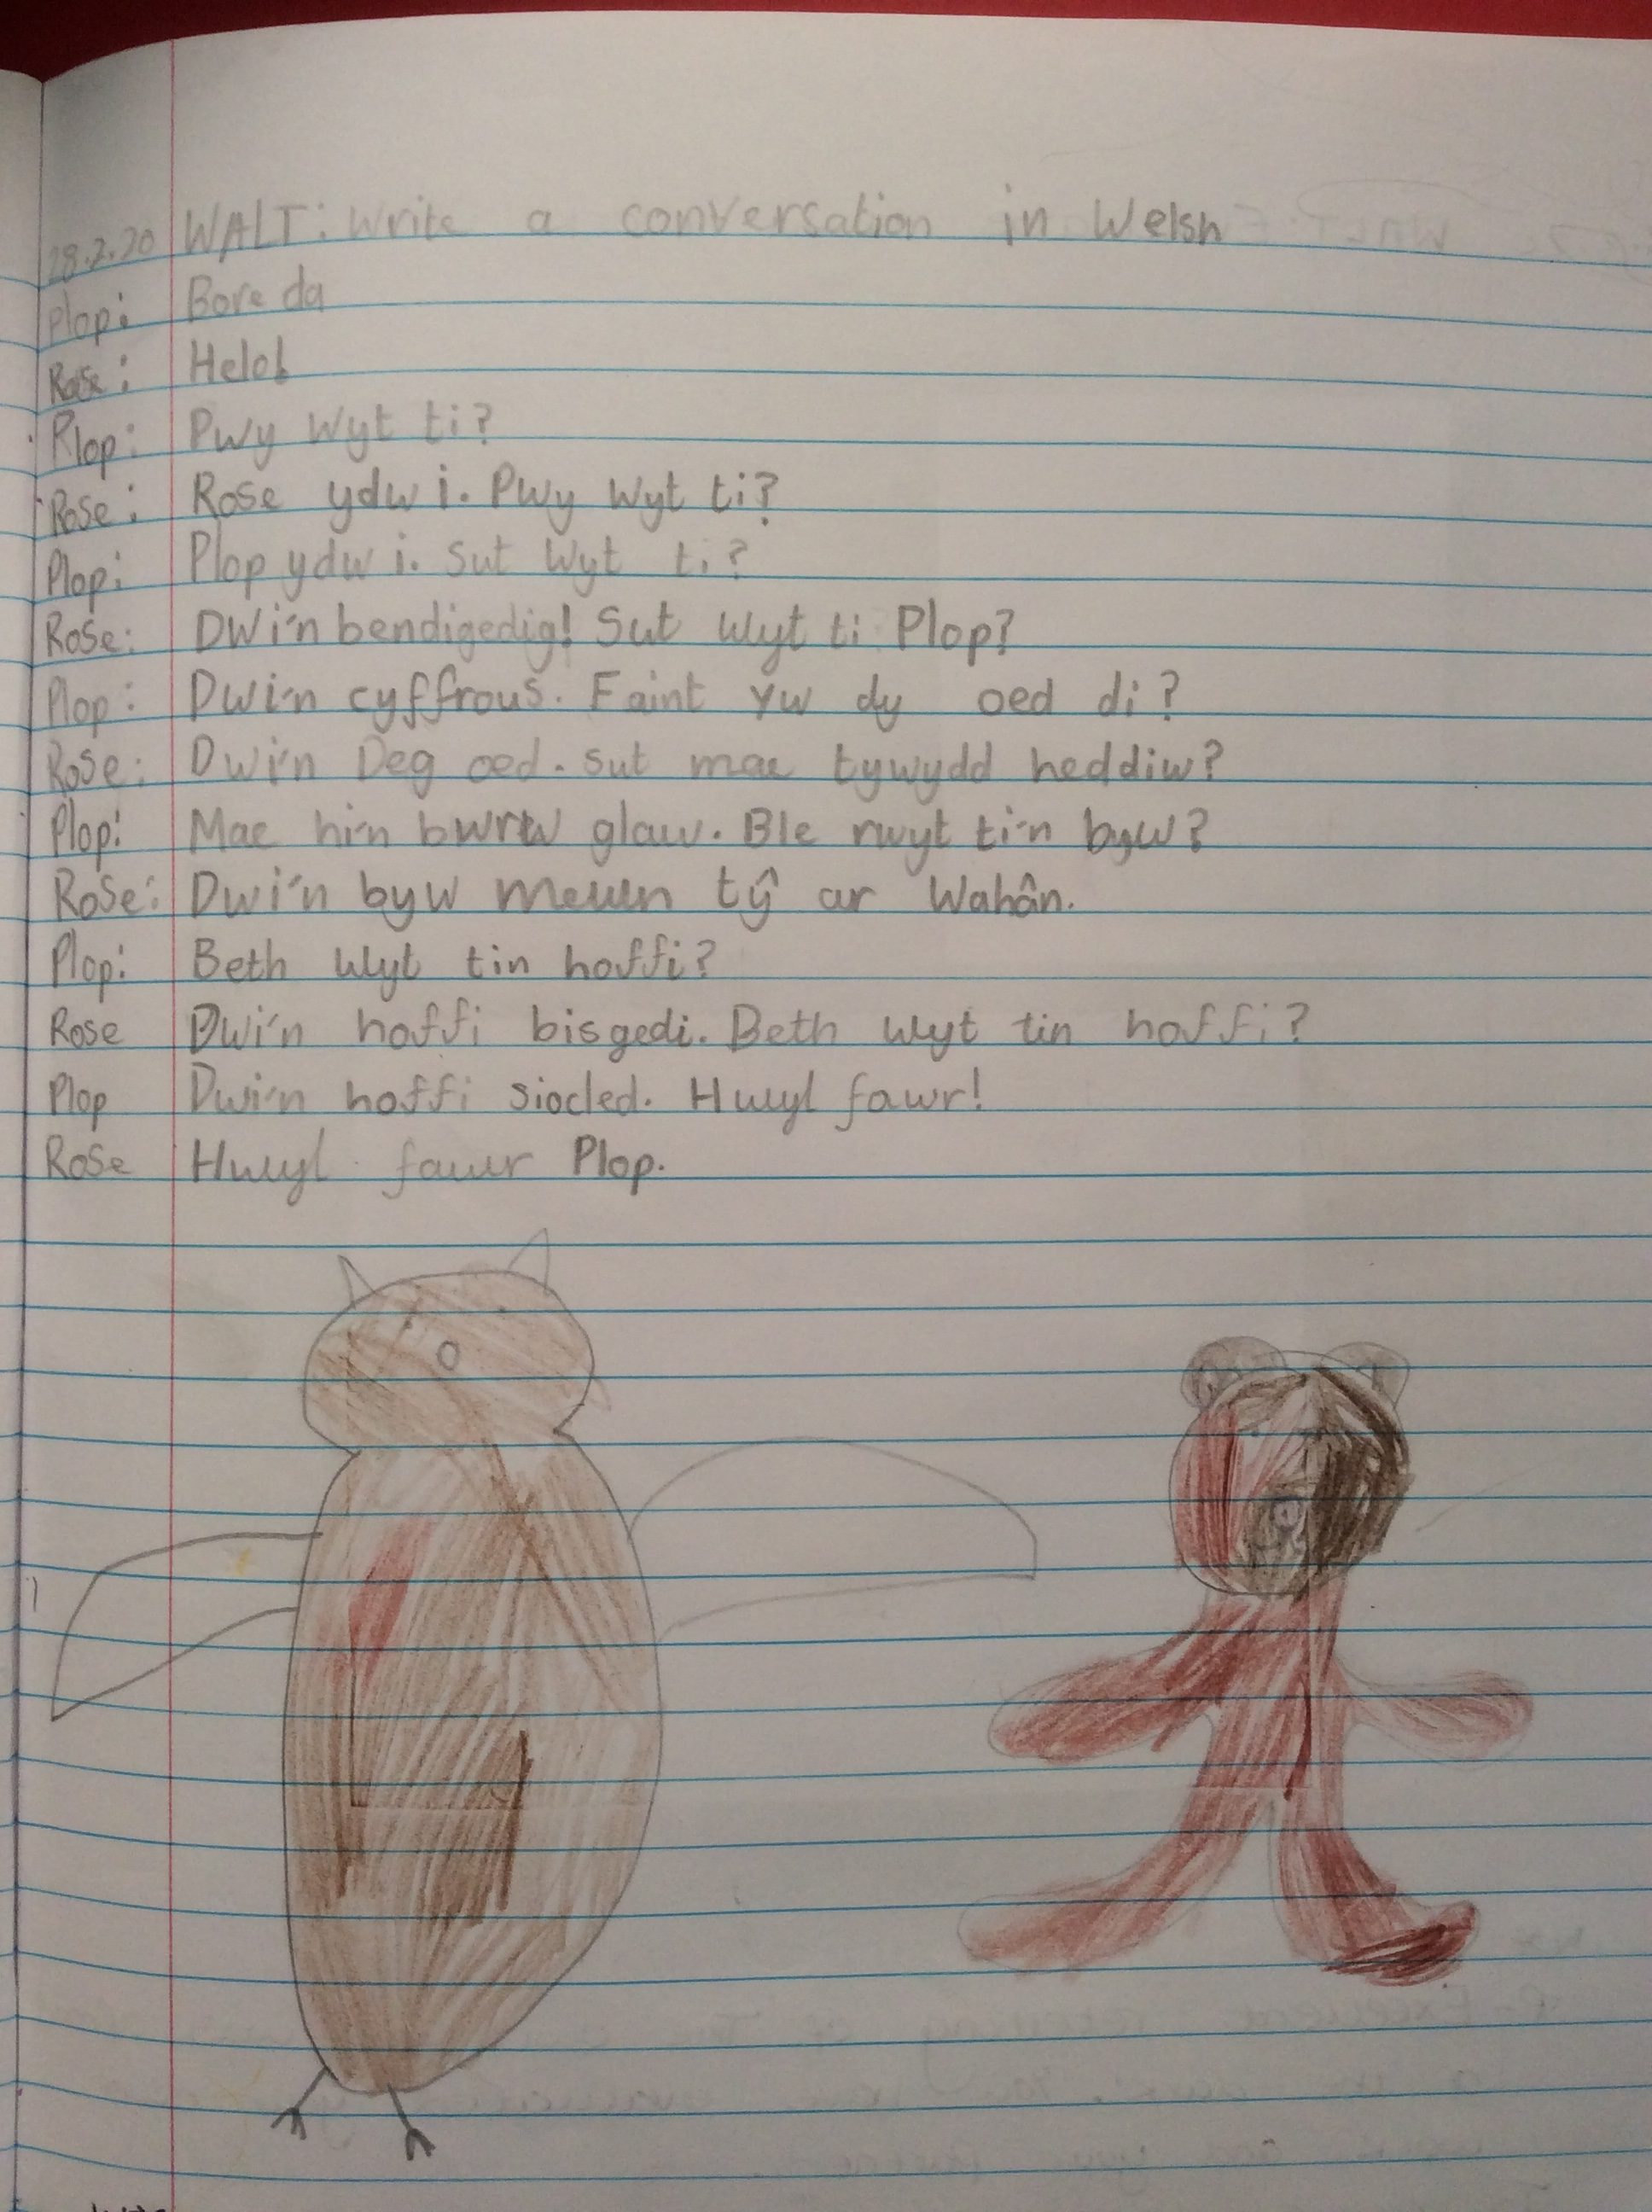 28.2.20 WALT: Write a conversation in Welsh
Plop: Bore da
Rose: Helo!
Plop: Pwy wyt ti?
Rose: Rose ydw i. Pwy wyt ti?
Plop: Plop ydw i. Sut wyt ti?
Rose: Dwi'n bendigedig! Sut wyt ti Plop?
Plop: Dwi'n cyffrous. Faint yw dy oed di?
Rose: Dwi'n Deg oed. sut mae tywydd heddiw?
Plop: Mae hi'n bwrw glaw. Ble rwyt ti'n byw?
Rose: Dwi'n byw mewn tŷ ar Wahân.
Plop: Beth wyt tin hoffi?
Rose Dwi'n hoffi bisgedi. Beth wyt tin hoffi?
Plop Dwi'n hoffi siocled. Hwyl fawr!
Rose Hwyl fawr Plop.